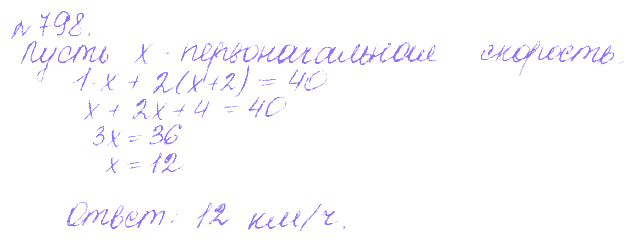 №798.
Пусть x - первоначальная скорость.
1·x + 2(x+2) = 40
x + 2x + 4 = 40
3x = 36
x = 12
Ответ: 12 км/ч.